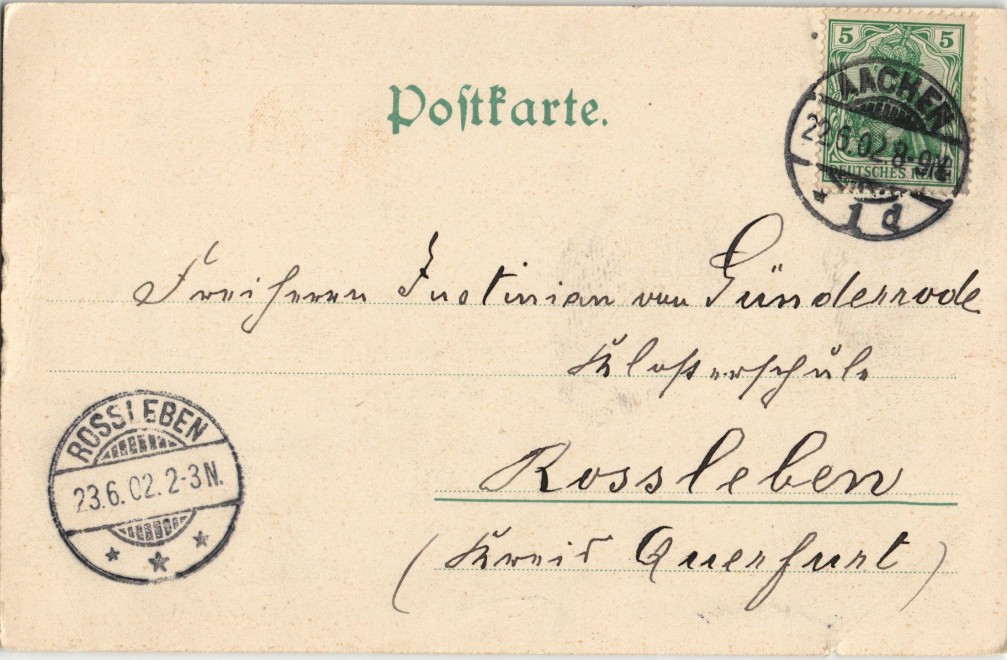 5 5
DEUTSCHES
AACHEN
22.6.02.8-9N.
1 d
Postkarte.
Freiherrn Justinian von Günderrode
Klosterschule
Rossleben
(Kreis Querfurt)
ROSSLEBEN
23.6.02.2-3N.